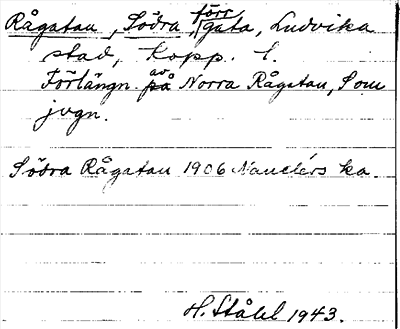 Rågatan, Södra, förr gata, Ludvika
stad, Kopp. l.
Förlängn. av på Norra Rågatan, Som
jvgn.
Södra Rågatan 1906 Nauclérs ka.
H. Ståhl 1943.